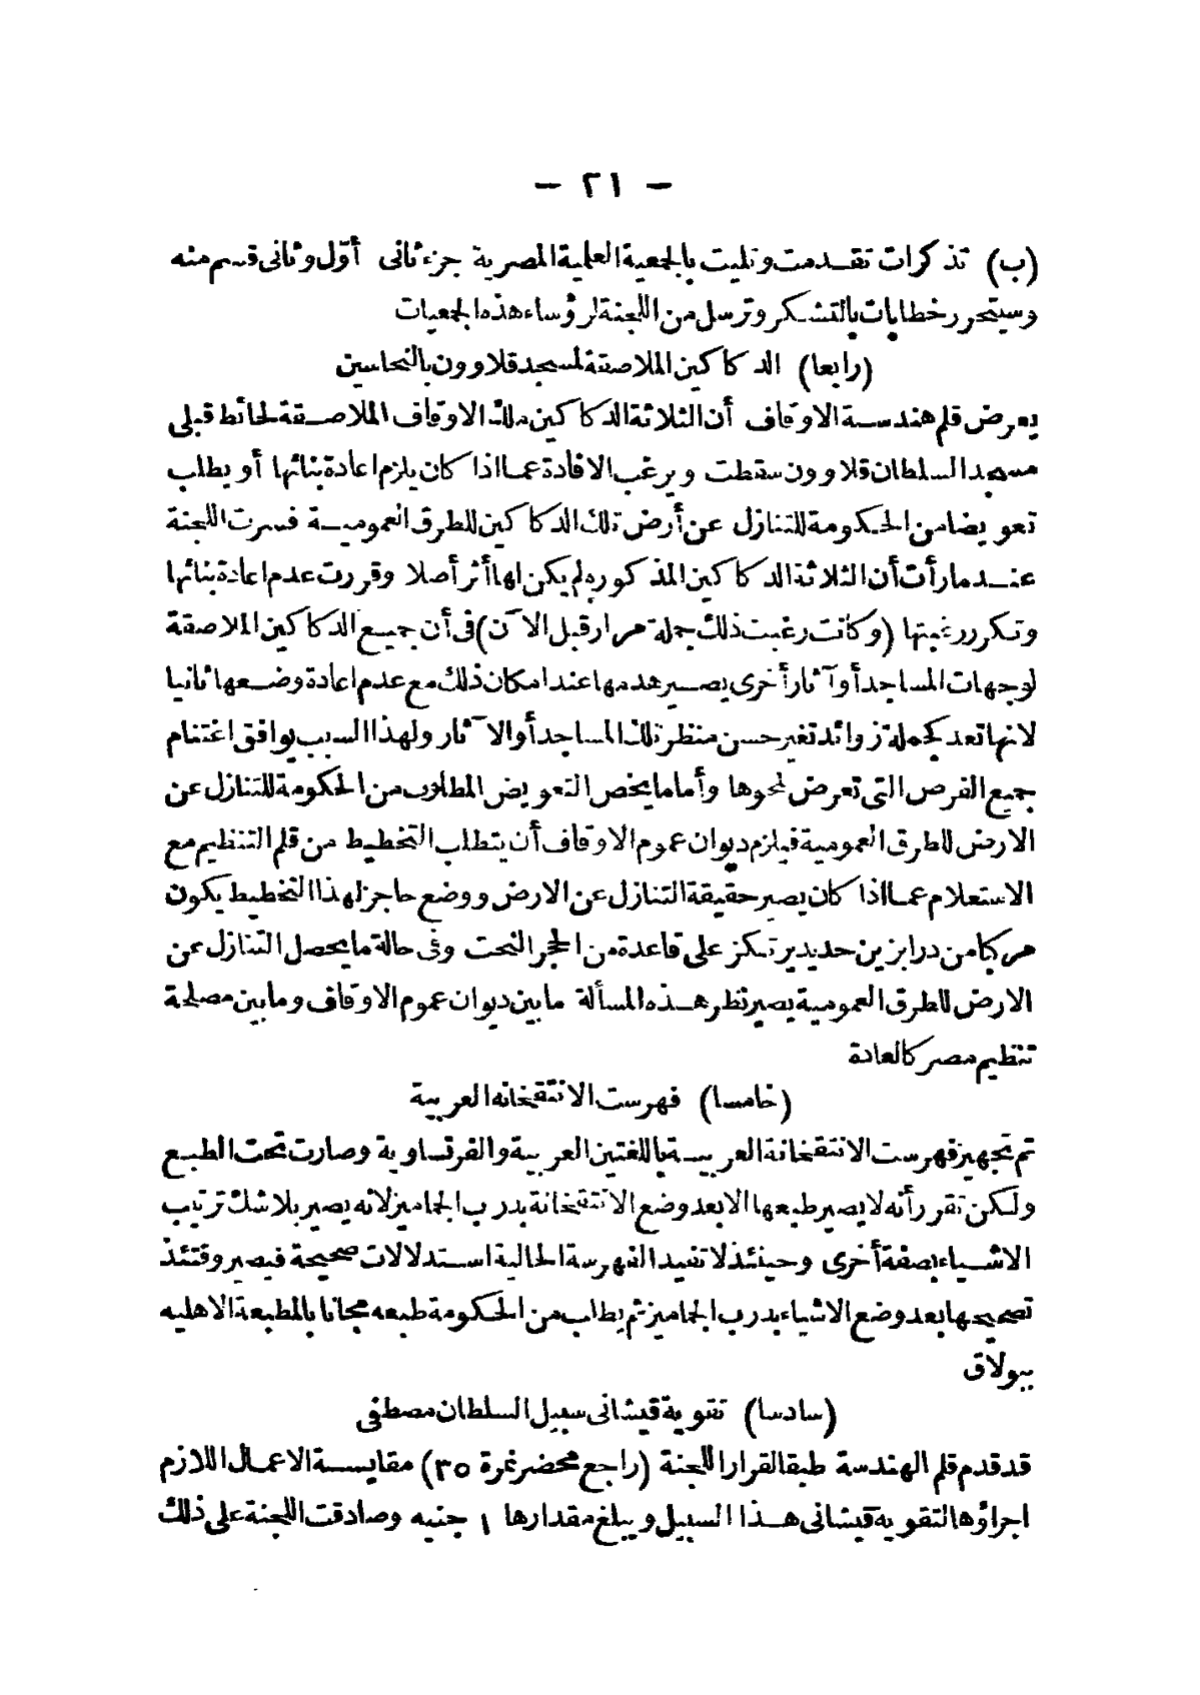 — ٢١ —
(ب) تذكرات تقدمت وتليت بالجمعية العلمية المصرية جزء ثانى أوّل وثانى قسم منه
وسيتحرر خطابات بالتشكر وترسل من اللجنة لرؤساء هذه الجمعيات
(رابعا) الدكاكين الملاصقة لمسجد قلاوون بالنحاسين
يعرض قلم هندسة الاوقاف أن الثلاثة الدكاكين ملك الاوقاف الملاصقة لحائط قبلى
مسجد السلطان قلاوون سقطت ويرغب الافادة عما اذا كان يلزم اعادة بنائها أو يطلب
تعويضا من الحكومة للتنازل عن أرض تلك الدكاكين للطرق العمومية فسرت اللجنة
عند ما رأت أن الثلاثة الدكاكين المذكوره لم يكن لها أثر أصلا وقررت عدم اعادة بنائها
وتكرر رغبتها (وكانت رغبت ذلك جملة مرار قبل الآن) فى أن جميع الدكاكين الملاصقة
لوجهات المساجد أو آثار أخرى يصير هدمها عند امكان ذلك مع عدم اعادة وضعها ثانيا
لانها تعد كجملة زوائد تغير حسن منظر تلك المساجد أو الآثار ولهذا السبب يوافق اغتنام
جميع الفرص التى تعرض لمحوها وأما ما يخص التعويض المطلوب من الحكومة للتنازل عن
الارض للطرق العمومية فيلزم ديوان عموم الاوقاف أن يتطلب التخطيط من قلم التنظيم مع
الاستعلام عما اذا كان يصير حقيقة التنازل عن الارض ووضع حاجز لهذا التخطيط يكون
مركبا من درابزين حديد يرتكز على قاعدة من الحجر النحت وفى حالة ما يحصل التنازل عن
الارض للطرق العمومية يصير نظر هذه المسألة ما بين ديوان عموم الاوقاف وما بين مصلحة
تنظيم مصر كالعادة
(خامسا) فهرست الانتقخانه العربية
تم تجهيز فهرست الانتقخانة العربية باللغتين العربية والفرنساوية وصارت تحت الطبع
ولكن تقرر أنه لا يصير طبعها الا بعد وضع الانتقخانة بدرب الجاميز لانه يصير بلا شك ترتيب
الاشياء بصفة أخرى وحينئذ لا تفيد الفهرسة الحالية استدلالات صحيحة فيصير وقتئذ
تصحيحها بعد وضع الاشياء بدرب الجاميز ثم يطلب من الحكومة طبعه مجانا بالمطبعة الاهليه
ببولاق
(سادسا) تقوية قيشانى سبيل السلطان مصطفى
قد قدم قلم الهندسة طبقا لقرار اللجنة (راجع محضر نمرة ٣٥) مقايسة الاعمال اللازم
اجراؤها لتقوية قيشانى هذا السبيل ويبلغ مقدارها ١ جنيه وصادقت اللجنة على ذلك